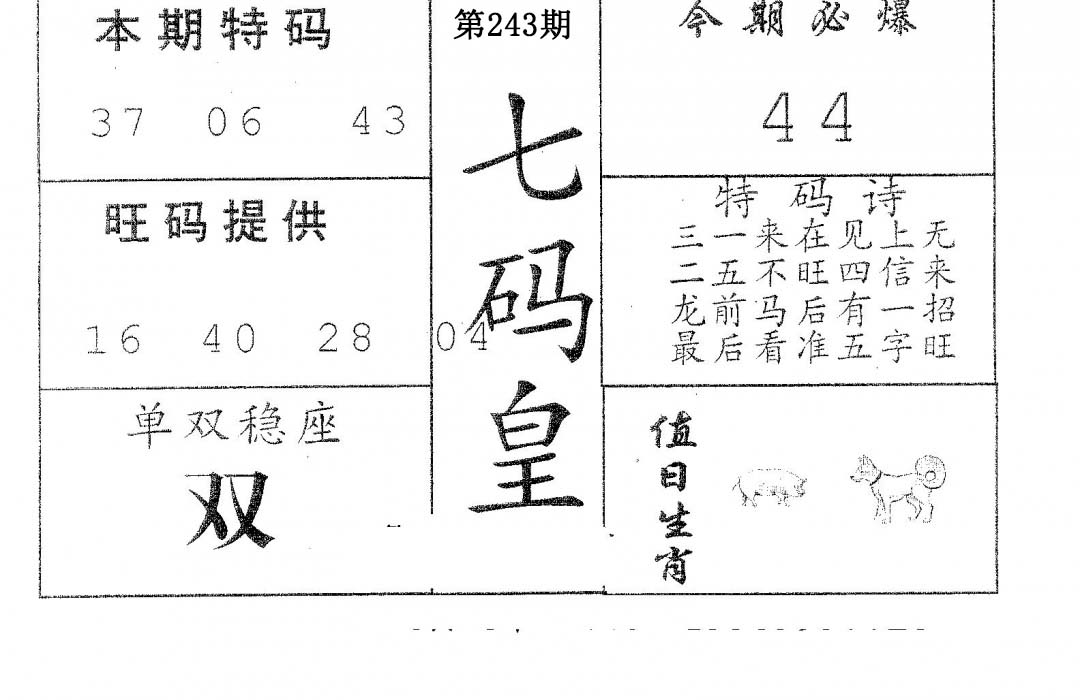 本期特码
37 06 43
旺码提供
16 40 28 04
单双稳座
双
第243期
七码皇
今期必爆
44
特码诗
三一来在见上无
二五不旺四信来
龙前马后有一招
最后看准五字旺
值日生肖